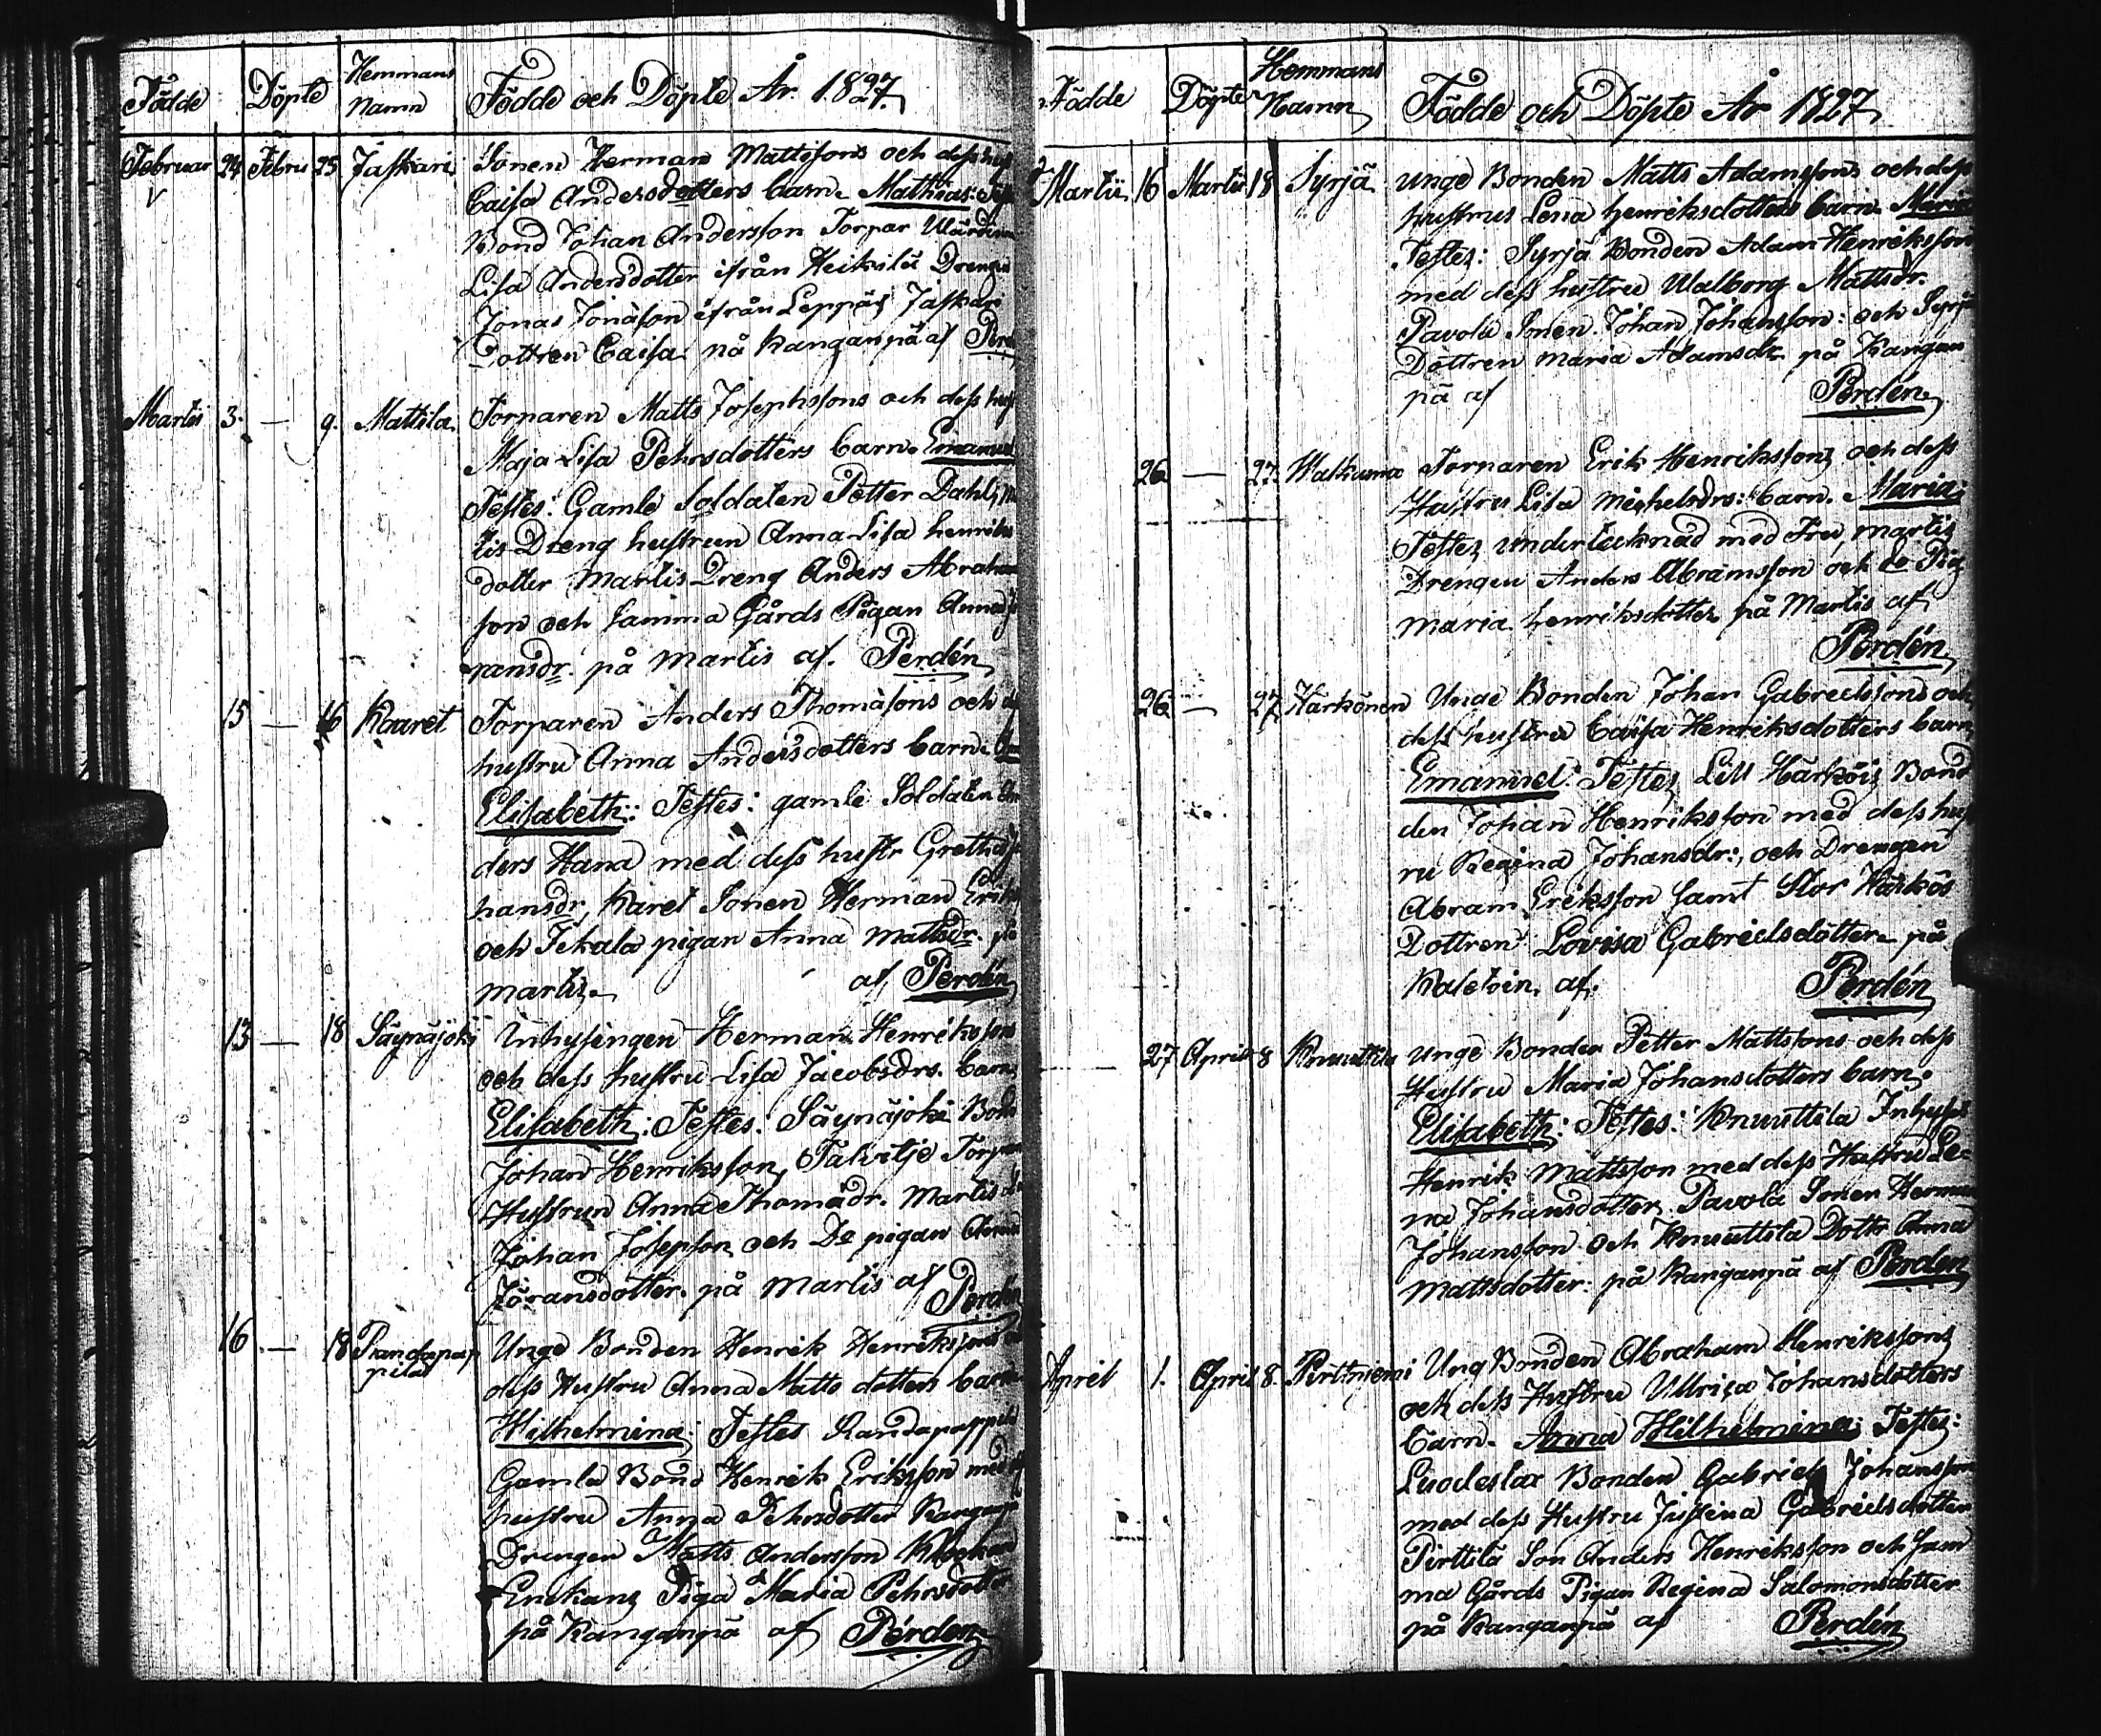 Födde Döpte Hemmans Namn Födde och Döpte År. 1827.
Februar 24 Febru 25 Jaskari Sonen Herman Mattssons och dess hus
Caisa Andersdotters barn. Mathias: Tes
Bond Johan Andersson Torpar
Lisa Andersdotter ifrån Heikilä Drengen
Jonas Jonasson ifrån Leppäs Jaskari
Dottren Caisa på Kanganpä af Per
Martii 3. — 9. Mattila Torparen Matts Josephssons och dess hust
Maja Lisa Pehrsdotters barn. Emanuel
Testes: Gamle Soldaten Petter Dahl, M
tis Dreng hustrun Anna Lisa henriks
dotter Martis Dreng Anders Abraham
son och samma Gårds Pigan Anna
ransdr. på Martis af. Perdén
15 — 16 Kaaret Torparen Anders Thomasons och de
hustru Anna Andersdotters barn.
Elisabeth: Testes: gamle Soldaten An
ders Hana med dess hustr Gretha Jo
hansdr, Karet Sonen Herman Eriks
och Tekala pigan Anna Mattsdr. på
Martis. af Perdén
13 — 18 Säynäjoki Inhysingen Herman Henrikssons
och dess hustru Lisa Jacobsdrs. barn
Elisabeth: Testes: Säynäjoki Bond
Johan Henriksson, Talvitje Torpar
Hustrun Anna Thomasdr. Martis
Johan Josepson och Do pigan Anna
Jöransdotter. på Martis af Perdén
16 — 18 Randapappila Unge Bonden Henrik Henrikssons
dess Hustru Anna Matts dotters barn
Wilhelmina: Testes Randapappila
Gamla Bond Henrik Eriksson med
hustru Anna Pehrsdotter Kanganpä
Drengen Matts Andersson
Piga Maria Pehrsdotter
på Kanganpä af Perden
Födde Döpte Hemmans Namn Födde och Döpte År 1827
Martii 16 Martii 18 Syrjä unge Bonden Matts Adamssons och dess
hustrus Lena henriksdotters barn. Maria
Testes: Syrjä Bonden Adam Henriksson
med dess hustru Walborg Mattsdr.
Pavola Sonen Johan Johansson: och Syrjä
Dottren Maria Adamsdr på Kangan
pä af Perdén
26 — 27. Walkama Torparen Erik Henrikssons och dess
Hustru Lisa Michelsdrs: barn. Maria:
Testes undertecknad med Fru, Martis
Drengen Anders Abramsson och do Pig
Maria henriksdotter på Martis af
Perdén
26 — 27 Harkönen Unge Bonden Johan Gabrielssons och
dess hustru Caisa Henriksdotters barn
Emanuel: Testes Lill Härköis Bond
den Johan Henriksson med dess hust
ru Regina Johansdr:, och Drengen
Abram Eriksson samt Stor Härkös
Dottren Lovisa Gabrielsdotter på
Kaletoin, af. Perdén
27 April 8 Knuuttila unge Bonden Petter Mattssons och dess
Hustru Maria Johansdotters barn.
Elisabeth: Testes: Knuuttila Inhyses
Henrik Mattsson med dess Hustru Le=
na Johansdotter Pavola Sonen Herman
Johansson och Knuuttila Dottr Anna
Mattsdotter. på Kanganpä af Perden
April 1. April 8. Pirttniemi Ung Bonden Abraham Henrikssons
och dess Hustru Ulrica Johansdotters
Barn. Anna Wilhelmina: Testes:
Luodeslax Bonden Gabriel Johansson
med dess Hustru Justina Gabrielsdotter
Pirttilä Son Anders Henriksson och sam
ma Gårds Pigan Regina Salomonsdotter
på Kanganpä af Perdén